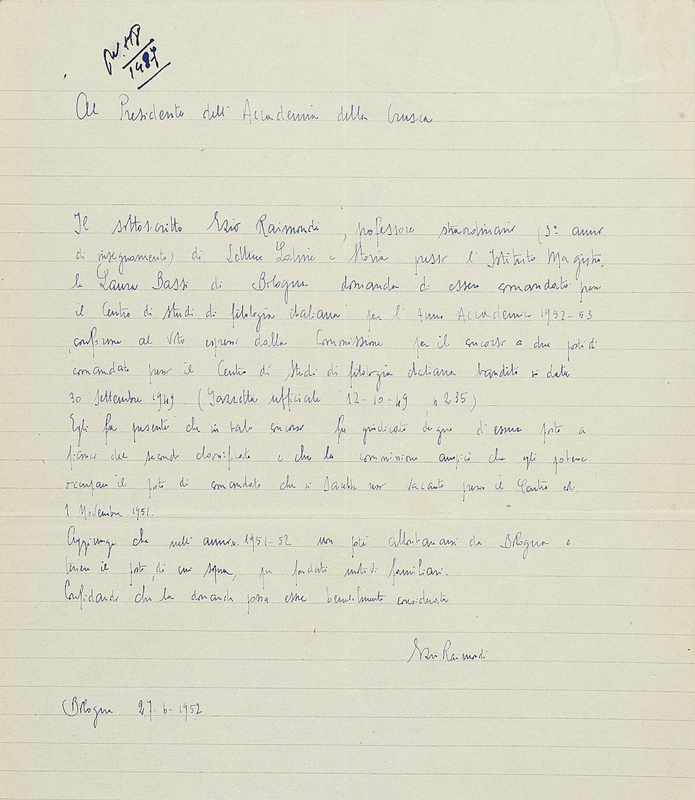 1984
Al Presidente dell'Accademia della Crusca
Il sottoscritto Ezio Raimondi, professore straordinario (3° anno
di insegnamento) di Lettere Latine e Storia presso l'Istituto Magistra-
le Laura Bassi di Bologna domanda di essere comandato presso
il Centro di studi di filologia italiana per l'Anno Accademico 1952-53
conforme al voto espresso dalla Commissione per il concorso a due posti di
comandato presso il Centro di Studi di filologia italiana bandito in data
30 settembre 1949 (Gazzetta ufficiale 12-10-49 n 235)
Egli fa presente che in tale concorso fu giudicato degno d'essere posto a
fianco del secondo classificato e che la commissione auspicò che egli potesse
occupare il posto di comandato che si sarebbe reso vacante presso il Centro al
1 Novembre 1951.
Aggiunge che nell'anno 1951-52 non poté allontanarsi da Bologna e
tenere il posto di cui sopra, per fondati motivi familiari.
Confidando che la domanda possa essere benevolmente considerata
Ezio Raimondi
Bologna 27-6-1952